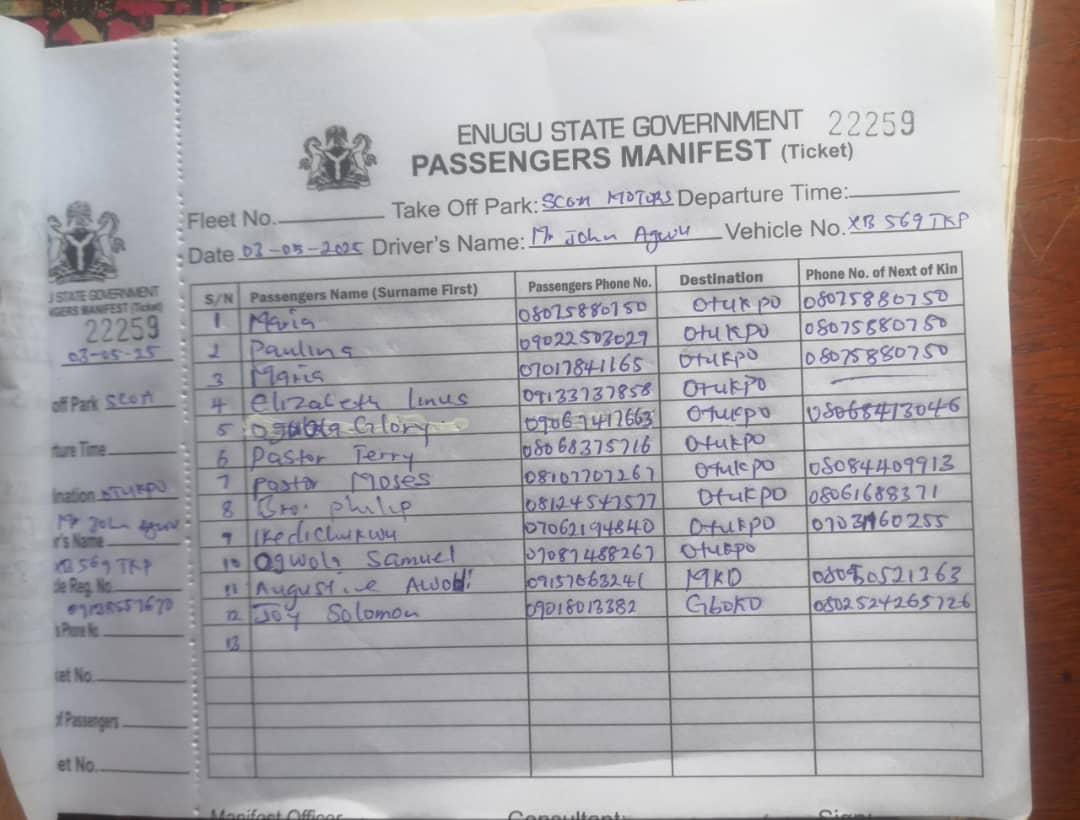 ENUGU STATE GOVERNMENT 22259
PASSENGERS MANIFEST (Ticket)
Fleet No. Take Off Park: SCON MOTORS Departure Time:
Date 03-05-2025 Driver's Name: Mr John Agwu Vehicle No. XB 569 TKP
S/N Passengers Name (Surname First) Passengers Phone No. Destination Phone No. of Next of Kin
1 Maria 08075880750 Otukpo 08075880750
2 Paulina 09022503029 Otukpo 08075880750
3 Maria 07017841165 Otukpo 08075880750
4 Elizabeth Linus 09133737858 Otukpo
5 Ogwola Glory 09067417663 Otukpo 08068413046
6 Pastor Terry 08068375716 Otukpo
7 Pastor Moses 08107707267 Otukpo 08084409913
8 Bro. Philip 08124547577 Otukpo 08061688371
9 Ikedichukwu 07062194840 Otukpo
10 Ogwola Samuel 07087488267 Otukpo
11 Augustine 09157063241 MKD
12 Joy Solomon 09018013382 GBOKO 0802524265726
13
Manifest Officer Consultant: Sign:
J STATE GOVERNMENT
GERS MANIFEST (Ticket)
22259
03-05-25
off Park SCON
rture Time
ination OTUKPO
Mr John Agwu
r's Name
XB 569 TKP
le Reg. No.
09128557670
s Phone No
ket No.
of Passengers
et No.